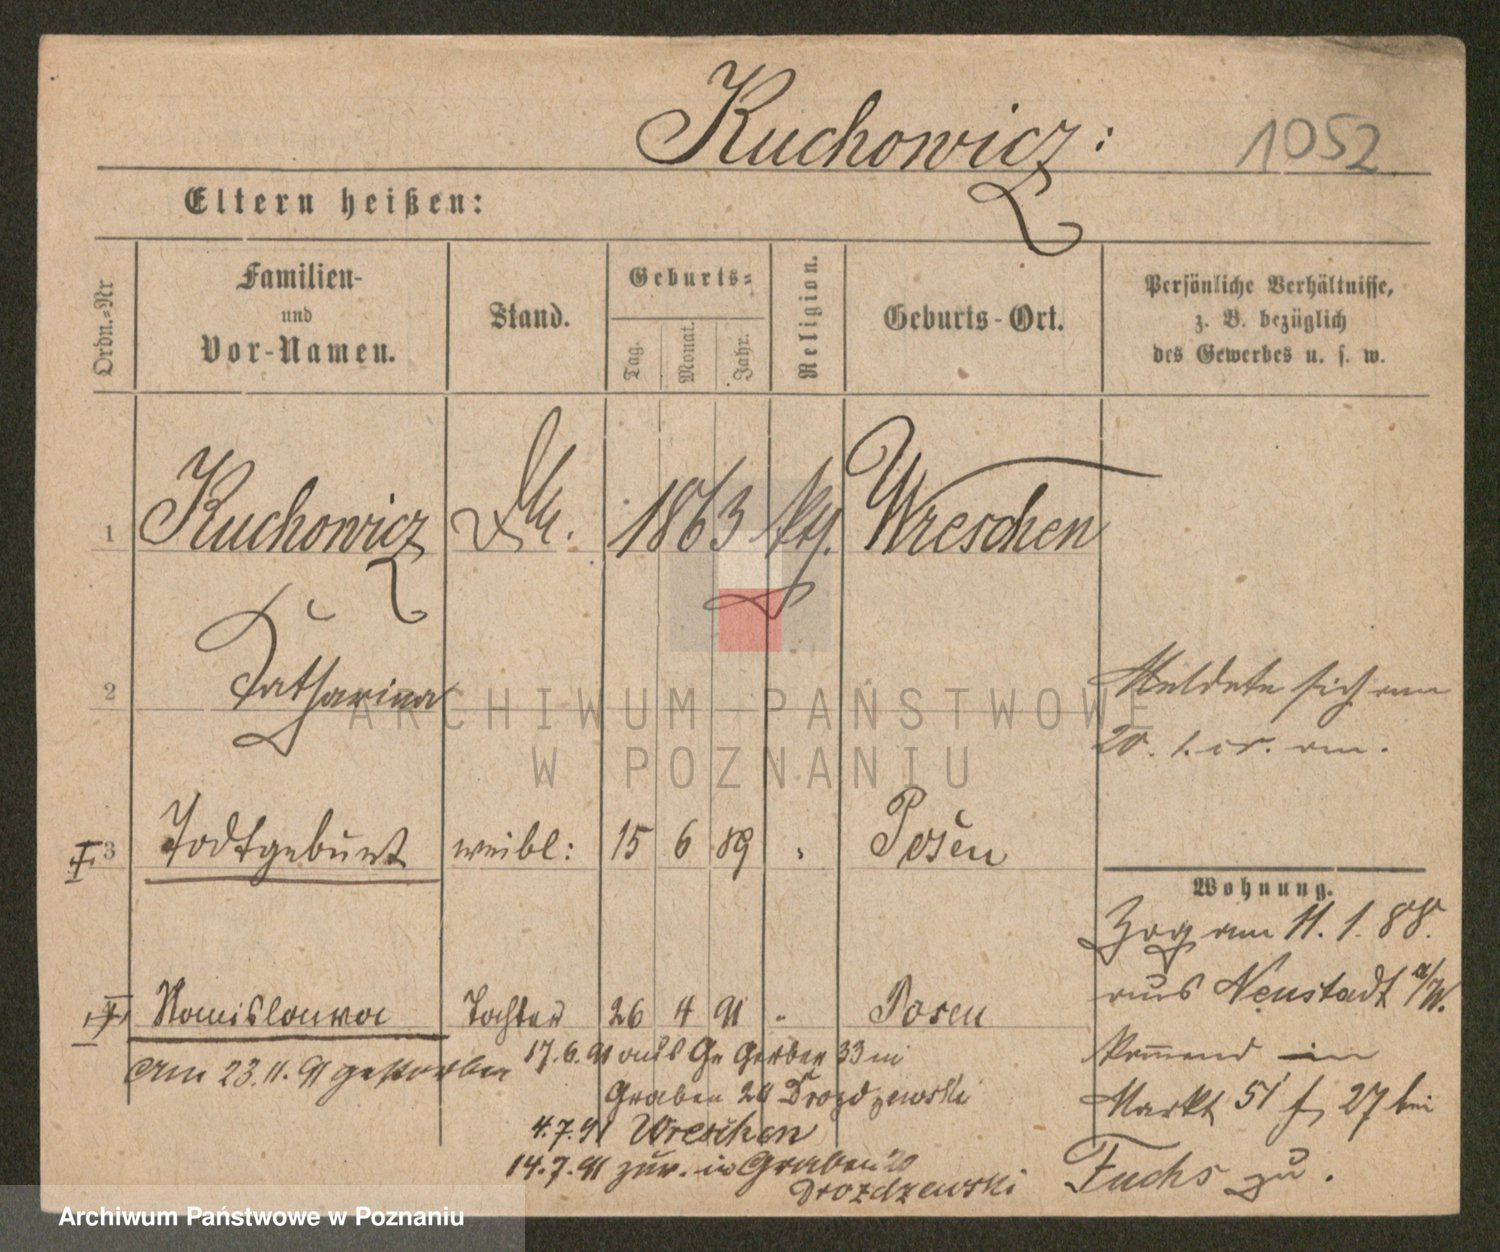 Kuchowicz:
1052
Eltern heißen:
Ordn.=Nr
Familien-
und
Vor-Namen.
Stand.
Geburts=
Tag.
Monat.
Jahr.
Religion.
Geburts-Ort.
Persönliche Verhältnisse,
z. B. bezüglich
des Gewerbes u. s. w.
1 Kuchowicz 1863 Wreschen
2 Katharina
Meldete sich am
20. 1. cr. an.
3 Todtgeburt weibl: 15 6 89 Posen
Wohnung.
Zog am 11. 1. 88.
aus Neustadt a/W.
Stanislawa Tochter 26 4 91 Posen
kommend in
Am 23.11.91 gestorben
17.6.91 aus Gr Gerber 33 in
Graben 20 Drozdzewski
Markt 51 27 bei
4.7.91 Wreschen
14.7.91 zur. in Graben 20
Drozdzewski
Fuchs zu.
ARCHIWUM PAŃSTWOWE
W POZNANIU
Archiwum Państwowe w Poznaniu